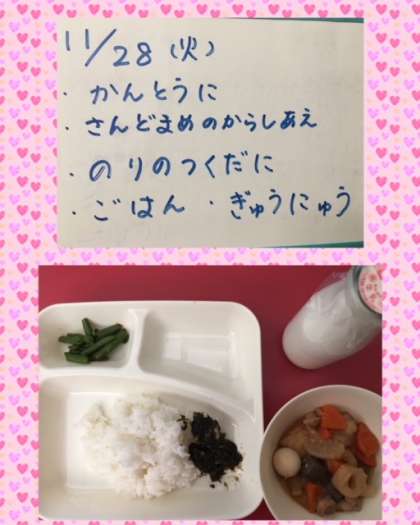 11/28(火)
・かんとうに
・さんどまめのからしあえ
・のりのつくだに
・ごはん ・ぎゅうにゅう